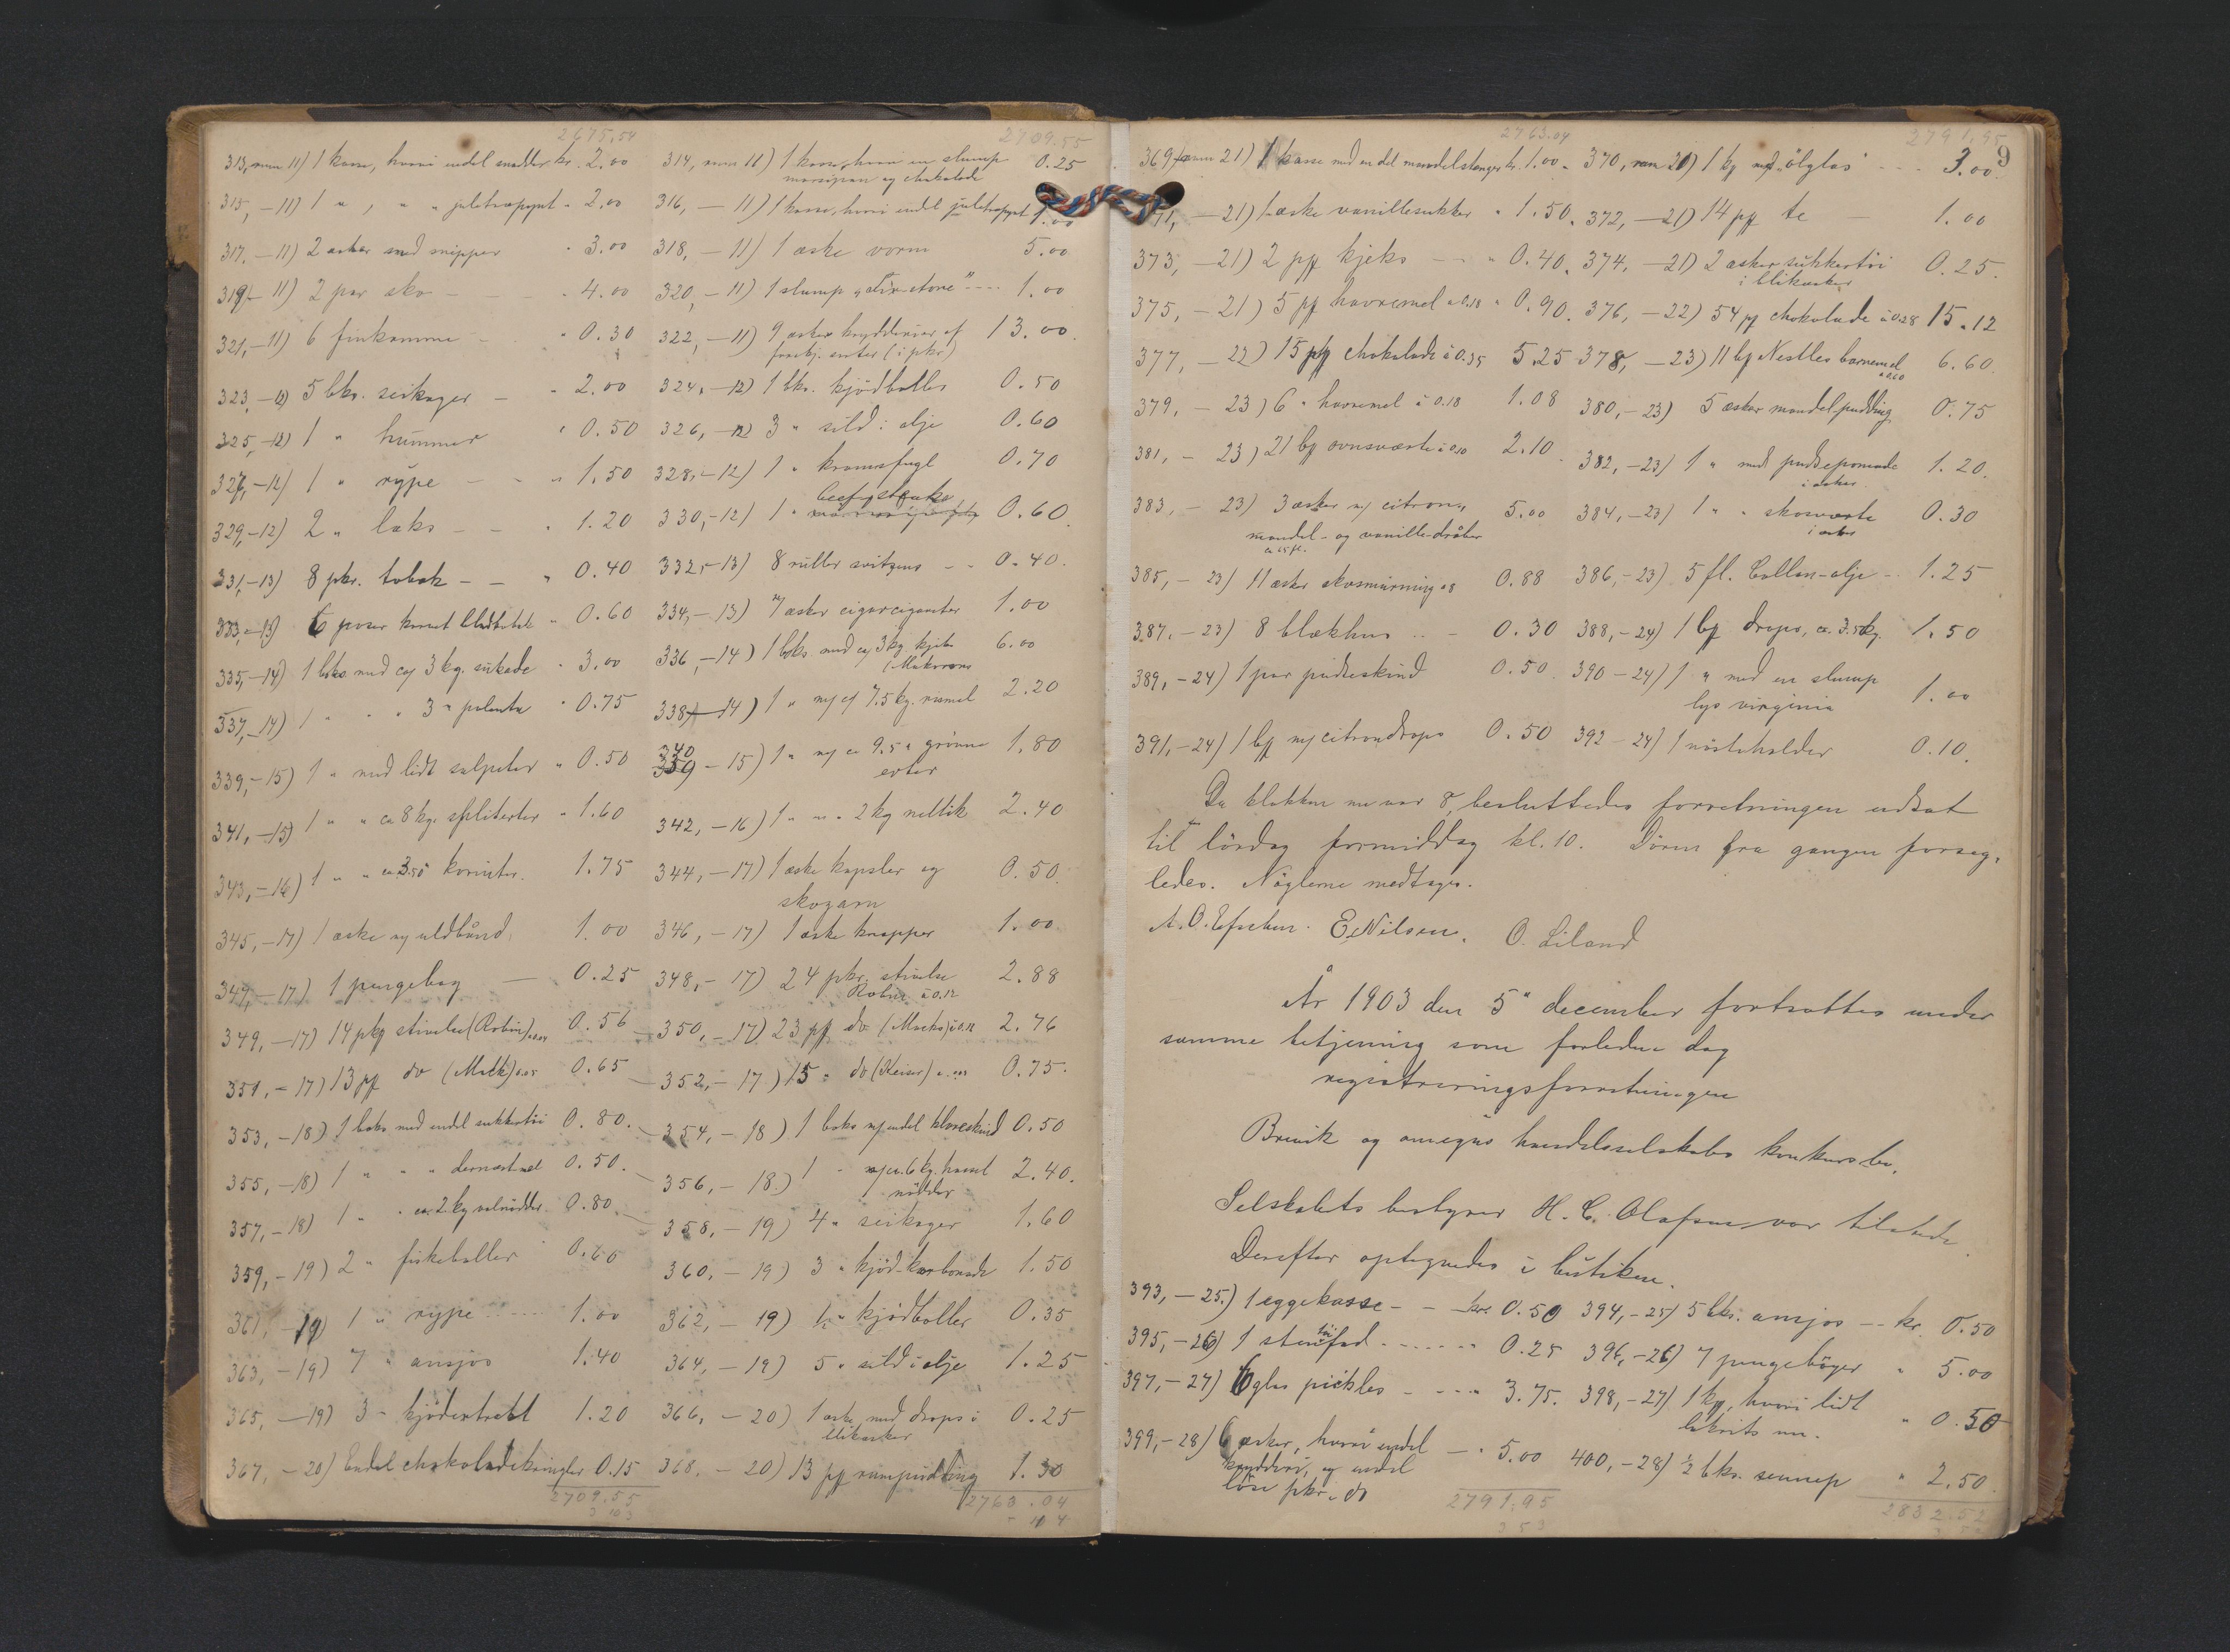 2675.54 2709.55
313, rum 11) 1 kasse, hvori endel smultter kr. 2.00
314, rum 11) 1 kasse, hvori en slump 0.25
marsipan og chokolade
315, - 11) 1 " , " " juletræpynt " 2.00
316, - 11) 1 kasse, hvori endel juletræpynt 1.00
317, - 11) 2 æsker med snipper " 3.00
318, - 11) 1 æske vorm 5.00
319, - 11) 2 par sko - - - " 4.00
320, - 11) 1 slump 1.00
321, - 11) 6 finkamme - " 0.30
322, - 11) 9 æsker krydderier af 13.00
forskj. sorter (i pkr)
323, - 12) 5 bks. seikager - " 2.00
324, - 12) 1 bks. kjödboller 0.50
325, - 12) 1 " hummer " 0.50
326, - 12) 3 " sild i olje 0.60
327, - 12) 1 " rype - - " 1.50
328, - 12) 1 " kramsfugl 0.70
329, - 12) 2 " laks - - " 1.20
330, - 12) 1 " beefsteaks 0.60
331, - 13) 8 pkr. tobak - - " 0.40
332, - 13) 8 ruller svitzens - - 0.40
333, - 13) 6 poser karvet bladtobak " 0.60
334, - 13) 7 æsker cigarcigaretter 1.00
335, - 14) 1 boks med ca 3 kg. sukade " 3.00
336, - 14) 1 boks med ca 3 kg. kjeks 6.00
(Makroner
337, - 14) 1 " " " 3 " polenta " 0.75
338, - 14) 1 " m/ ca 7.5 kg. rismel 2.20
339, - 15) 1 " med lidt salpeter " 0.50
340 - 15) 1 " m/ ca 9.5 " grönne 1.80
erter
341, - 15) 1 " " ca 8 kg. splitterter " 1.60
342, - 16) 1 " " " 2 kg nellik 2.40
343, - 16) 1 " " ca 3.50 korinter. 1.75
344, - 17) 1 æske kapsler og 0.50
skogarn
345, - 17) 1 æske m/ uldbånd 1.00
346, - 17) 1 æske knapper 1.00
347, - 17) 1 pengebog - 0.25
348, - 17) 24 pkr. stivelse 2.88
Robin à 0.12
349, - 17) 14 pkg stivelse (Robin) à 0.04 0.56
350, - 17) 23 pk do (Macks) à 0.12 2.76
351, - 17) 13 pk do (Malk) à 0.05 0.65
352, - 17) 15 " do (Keiser) à 0.05 0.75
353, - 18) 1 boks med endel sukkertöi 0.80
354, - 18) 1 boks m/ endel kloreskind 0.50
355, - 18) 1 " " " 0.50
356, - 18) 1 " m/ ca. 6 kg. hassel 2.40
nödder
357, - 18) 1 " " ca. 2 kg valnödder 0.80
358, - 19) 4 " seikager 1.60
359, - 19) 2 " fiskeboller 0.60
360, - 19) 3 " kjöd-karbonade 1.50
361, - 19) 1 " rype 1.00
362, - 19) 1/2 " kjödboller 0.35
363, - 19) 7 " ansjos 1.40
364, - 19) 5 " sild i olje 1.25
365, - 19) 3 " kjödextrakt 1.20
366, - 20) 1 æske med drops i 0.25
blikæsker
367, - 20) Endel chokoladekringler 0.15
368, - 20) 13 pk rumpudding 1.30
2709.55 2763.04
2763.04 2791.95
9
369, rum 21) 1 kasse med en del mandelstænger kr. 1.00
370, rum 21) 1 kg med "ölglas" - - - 3.00
371, - 21) 1 æske vanillesukker " 1.50
372, - 21) 14 pk te 1.00
373, - 21) 2 pk kjeks - - " 0.40
374, - 21) 2 æsker sukkertöi 0.25
i blikæsker
375, - 21) 5 pk havremel à 0.18 " 0.90
376, - 22) 54 pk chokolade à 0.28 15.12
377, - 22) 15 pk chokolade à 0.35 5.25
378, - 23) 11 bx Nestles barnemel 6.60
à 0.60
379, - 23) 6 " havremel à 0.18 1.08
380, - 23) 5 æsker mandelpudding 0.75
381, - 23) 21 bx ovnsværte à 0.10 2.10
382, - 23) 1 " med pudsepomade 1.20
i æsker
383, - 23) 3 æsker m/ citron, 5.00
mandel- og vanille-dråber
ca 65 fl.
384, - 23) 1 " " skosværte 0.30
i æsker
385, - 23) 11 æsker skosmurning à 8 0.88
386, - 23) 5 fl. Collan-olje - 1.25
387, - 23) 8 blækhus - - 0.30
388, - 24) 1 bx drops, ca. 3.5 kg. 1.50
389, - 24) 1 par pudseskind 0.50
390 - 24) 1 " med en slump 1.00
lys virginia
391, - 24) 1 bx m/ citrondrops 0.50
392 - 24) 1 nösteholder 0.10
Da klokken nu var 8, besluttedes forretningen udsat
til lördag formiddag kl. 10. Dören fra gangen forseg-
ledes. Nöglerne medtages.
E. Nilsen. O. Liland
År 1903 den 5" december fortsattes under
samme betjening som forledne dag
registreringsforretningen
Brevik og omegns handelsselskabs konkursbo.
Selskabets bestyrer H. C. Olafsen var tilstede.
Derefter optegnedes i butiken.
393, - 25) 1 eggekasse - - kr. 0.50
394, - 25) 5 bks. ansjos - - kr. 0.50
395, - 26) 1 stentöifad - - - - 0.25
396, - 26) 7 pengebøger " 5.00
397, - 27) 6 glas pickles - - - " 3.75
398, - 27) 1 kg, hvori lidt " 0.50
lakrits m.
399, - 28) 6 æsker, hvori endel - " 5.00
krydderi, og endel
löse pkr. do
400, - 28) 1/2 bks. sennep " 2.50
2791.95 2832.52
353